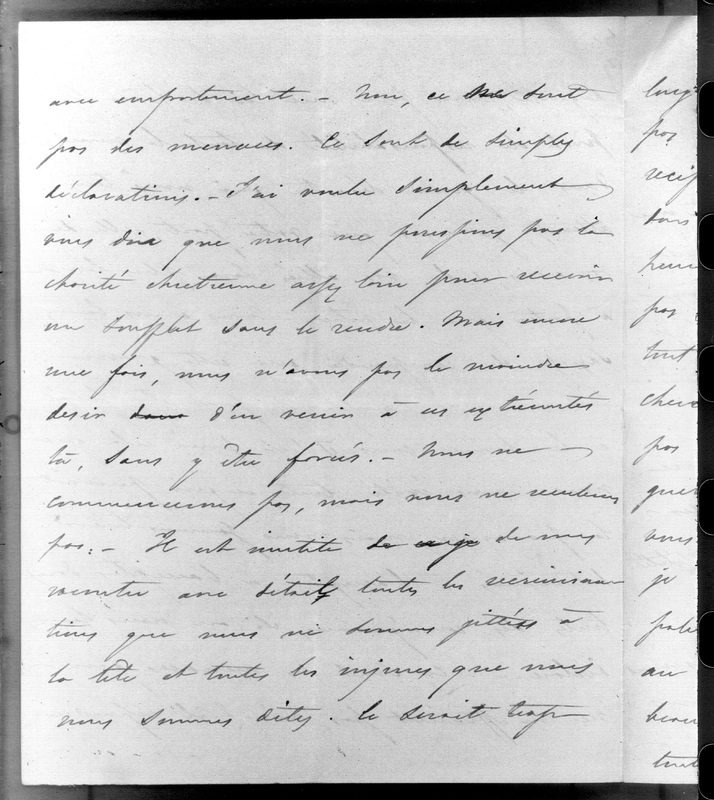 avec emportement. - Non, ce ne sont
pas des menaces. Ce sont de simples
déclarations. - J'ai voulu simplement
vous dire que nous ne poussions pas la
charité chretienne assez loin pour recevoir
un soufflet sans le rendre. Mais encore
une fois, nous n'avons pas le moindre
desir dans d'en venir à ces extrémités
là, sans y être forcés. - Nous ne
commencerons pas, mais nous ne reculerons
pas. - Il est inutile de de vous
raconter avec détails toutes les récrimina-
tions que nous ne sommes jittés à
la tête et toutes les injures que nous
nous sommes dites. Ce serait trop
long
pas
dans
pas
tout
pas
vous
je
au